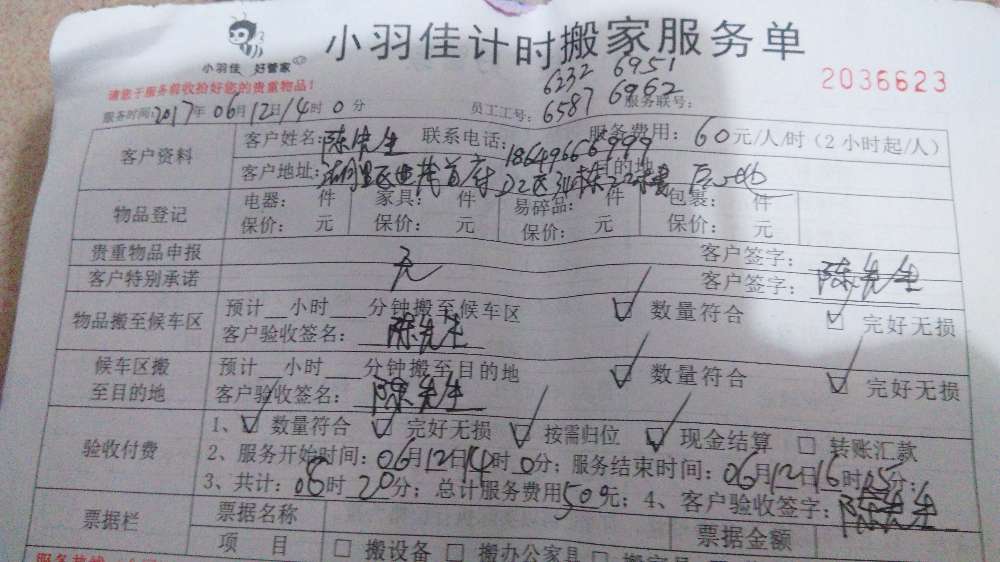 小羽佳计时搬家服务单
小羽佳 好管家
请您于服务前收拾好您的贵重物品!
2036623
6332 6951
服务时间: 2017年06月12日14时0分 员工工号: 6587 6962 服务联号:
客户资料
客户姓名: 陈先生 联系电话: 18649666999 服务费用: 60元/人/时(2小时起/人)
客户地址: 首府D2区 目的地
物品登记
电器: 件 家具: 件 易碎品: 件 包裹: 件
保价: 元 保价: 元 保价: 元 保价: 元
贵重物品申报 客户签字:
客户特别承诺 无 客户签字: 陈先生
物品搬至候车区
预计__小时___分钟搬至候车区 ☑ 数量符合 ☑ 完好无损
客户验收签名: 陈先生
候车区搬至目的地
预计__小时___分钟搬至目的地 ☑ 数量符合 ☑ 完好无损
客户验收签名: 陈先生
验收付费
1、☑ 数量符合 ☑ 完好无损 ☑ 按需归位 ☑ 现金结算 □ 转账汇款
2、服务开始时间: 06月12日14时0分; 服务结束时间: 06月12日16时05分;
3、共计: 08时20分; 总计服务费用500元; 4、客户验收签字: 陈先生
票据栏
票据名称 票据金额
项 目 □ 搬设备 □ 搬办公家具
服务热线